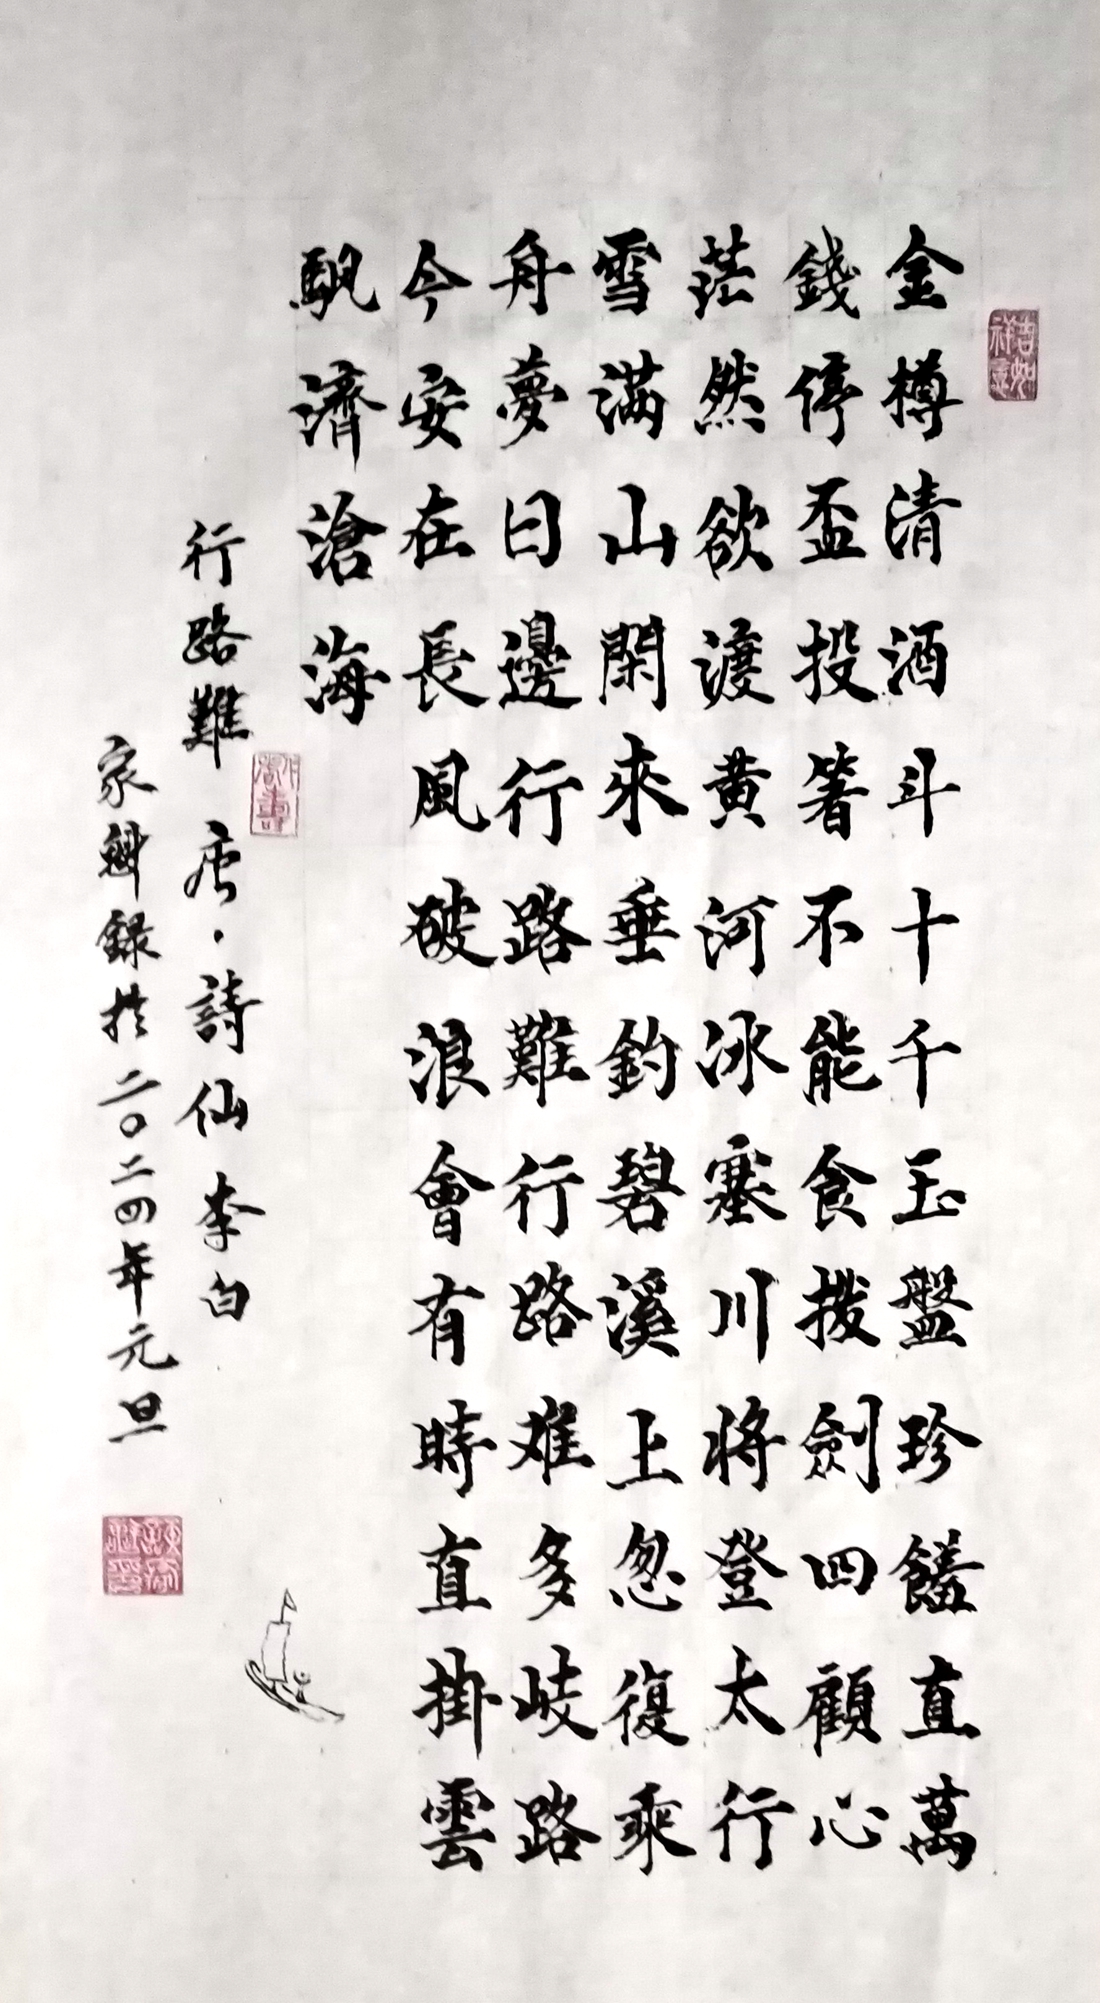 吉祥如意
金樽清酒斗十千玉盤珍饈直萬
錢停盃投箸不能食拔劍四顧心
茫然欲渡黄河冰塞川将登太行
雪满山閑來垂釣碧溪上忽復乘
舟夢日邊行路難行路难多岐路
今安在長風破浪會有時直掛雲
颿濟滄海
行路難 唐·詩仙李白
家魁録於二〇二四年元旦